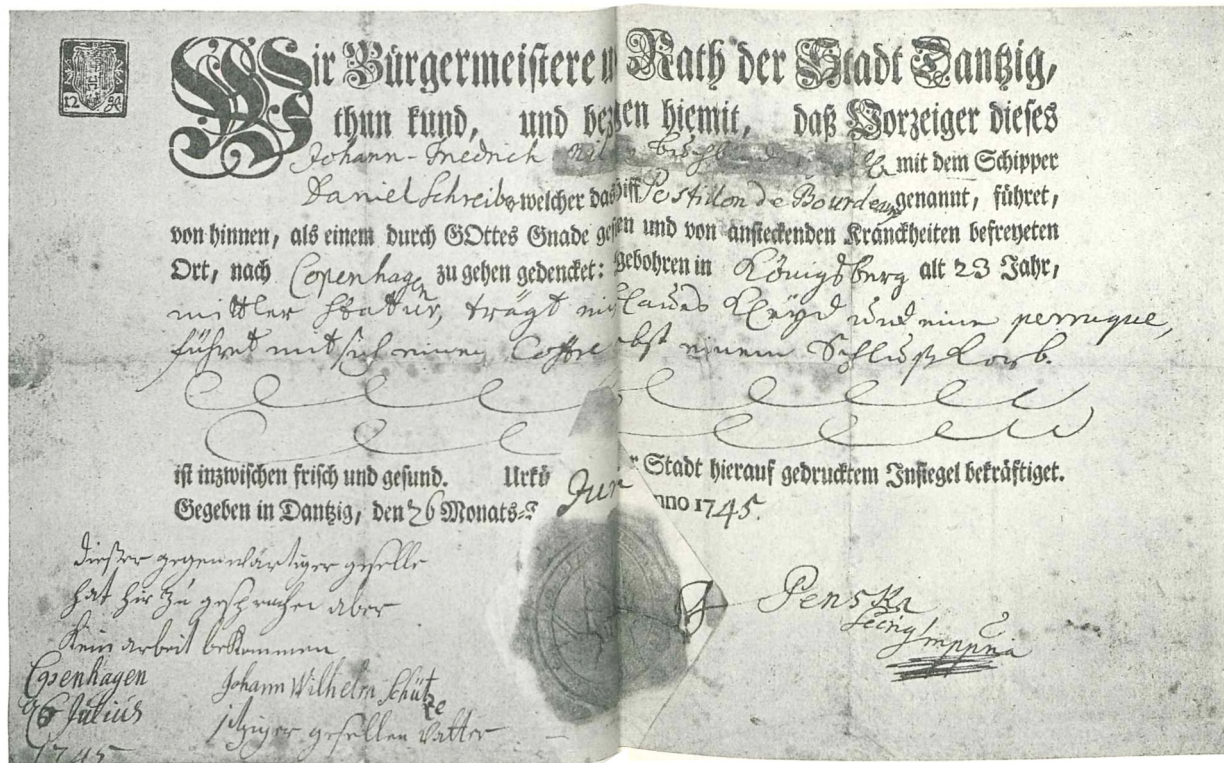 12 94
Wir Bürgermeistere u Rath der Stadt Dantzig,
thun kund, und bez en hiemit, daß Vorzeiger dieses
Johann-Friedrich mit dem Schipper
Daniel Schreiber welcher das Schiff Postillon de Bourdeaux genannt, führet,
von hinnen, als einem durch GOttes Gnade ges en und von ansteckenden Kranckheiten befreyeten
Ort, nach Copenhagen zu gehen gedencket: gebohren in Königsberg alt 23 Jahr,
mittler Statur, trägt ein blaues Kleyd und eine perruque,
führet mit sich einen Coffre nebst einem Schließ Korb.
ist inzwischen frisch und gesund. Urkü r Stadt hierauf gedrucktem Insiegel bekräftiget.
Gegeben in Dantzig, den 26 Monats-T Jun nno 1745.
dießer gegenwärtiger geselle
hat hir zu gesprochen aber
Kein arbeit bekommen
Copenhagen Johann Wilhelm Schütze
Julius itziger gesellen Vatter
1745
Penski